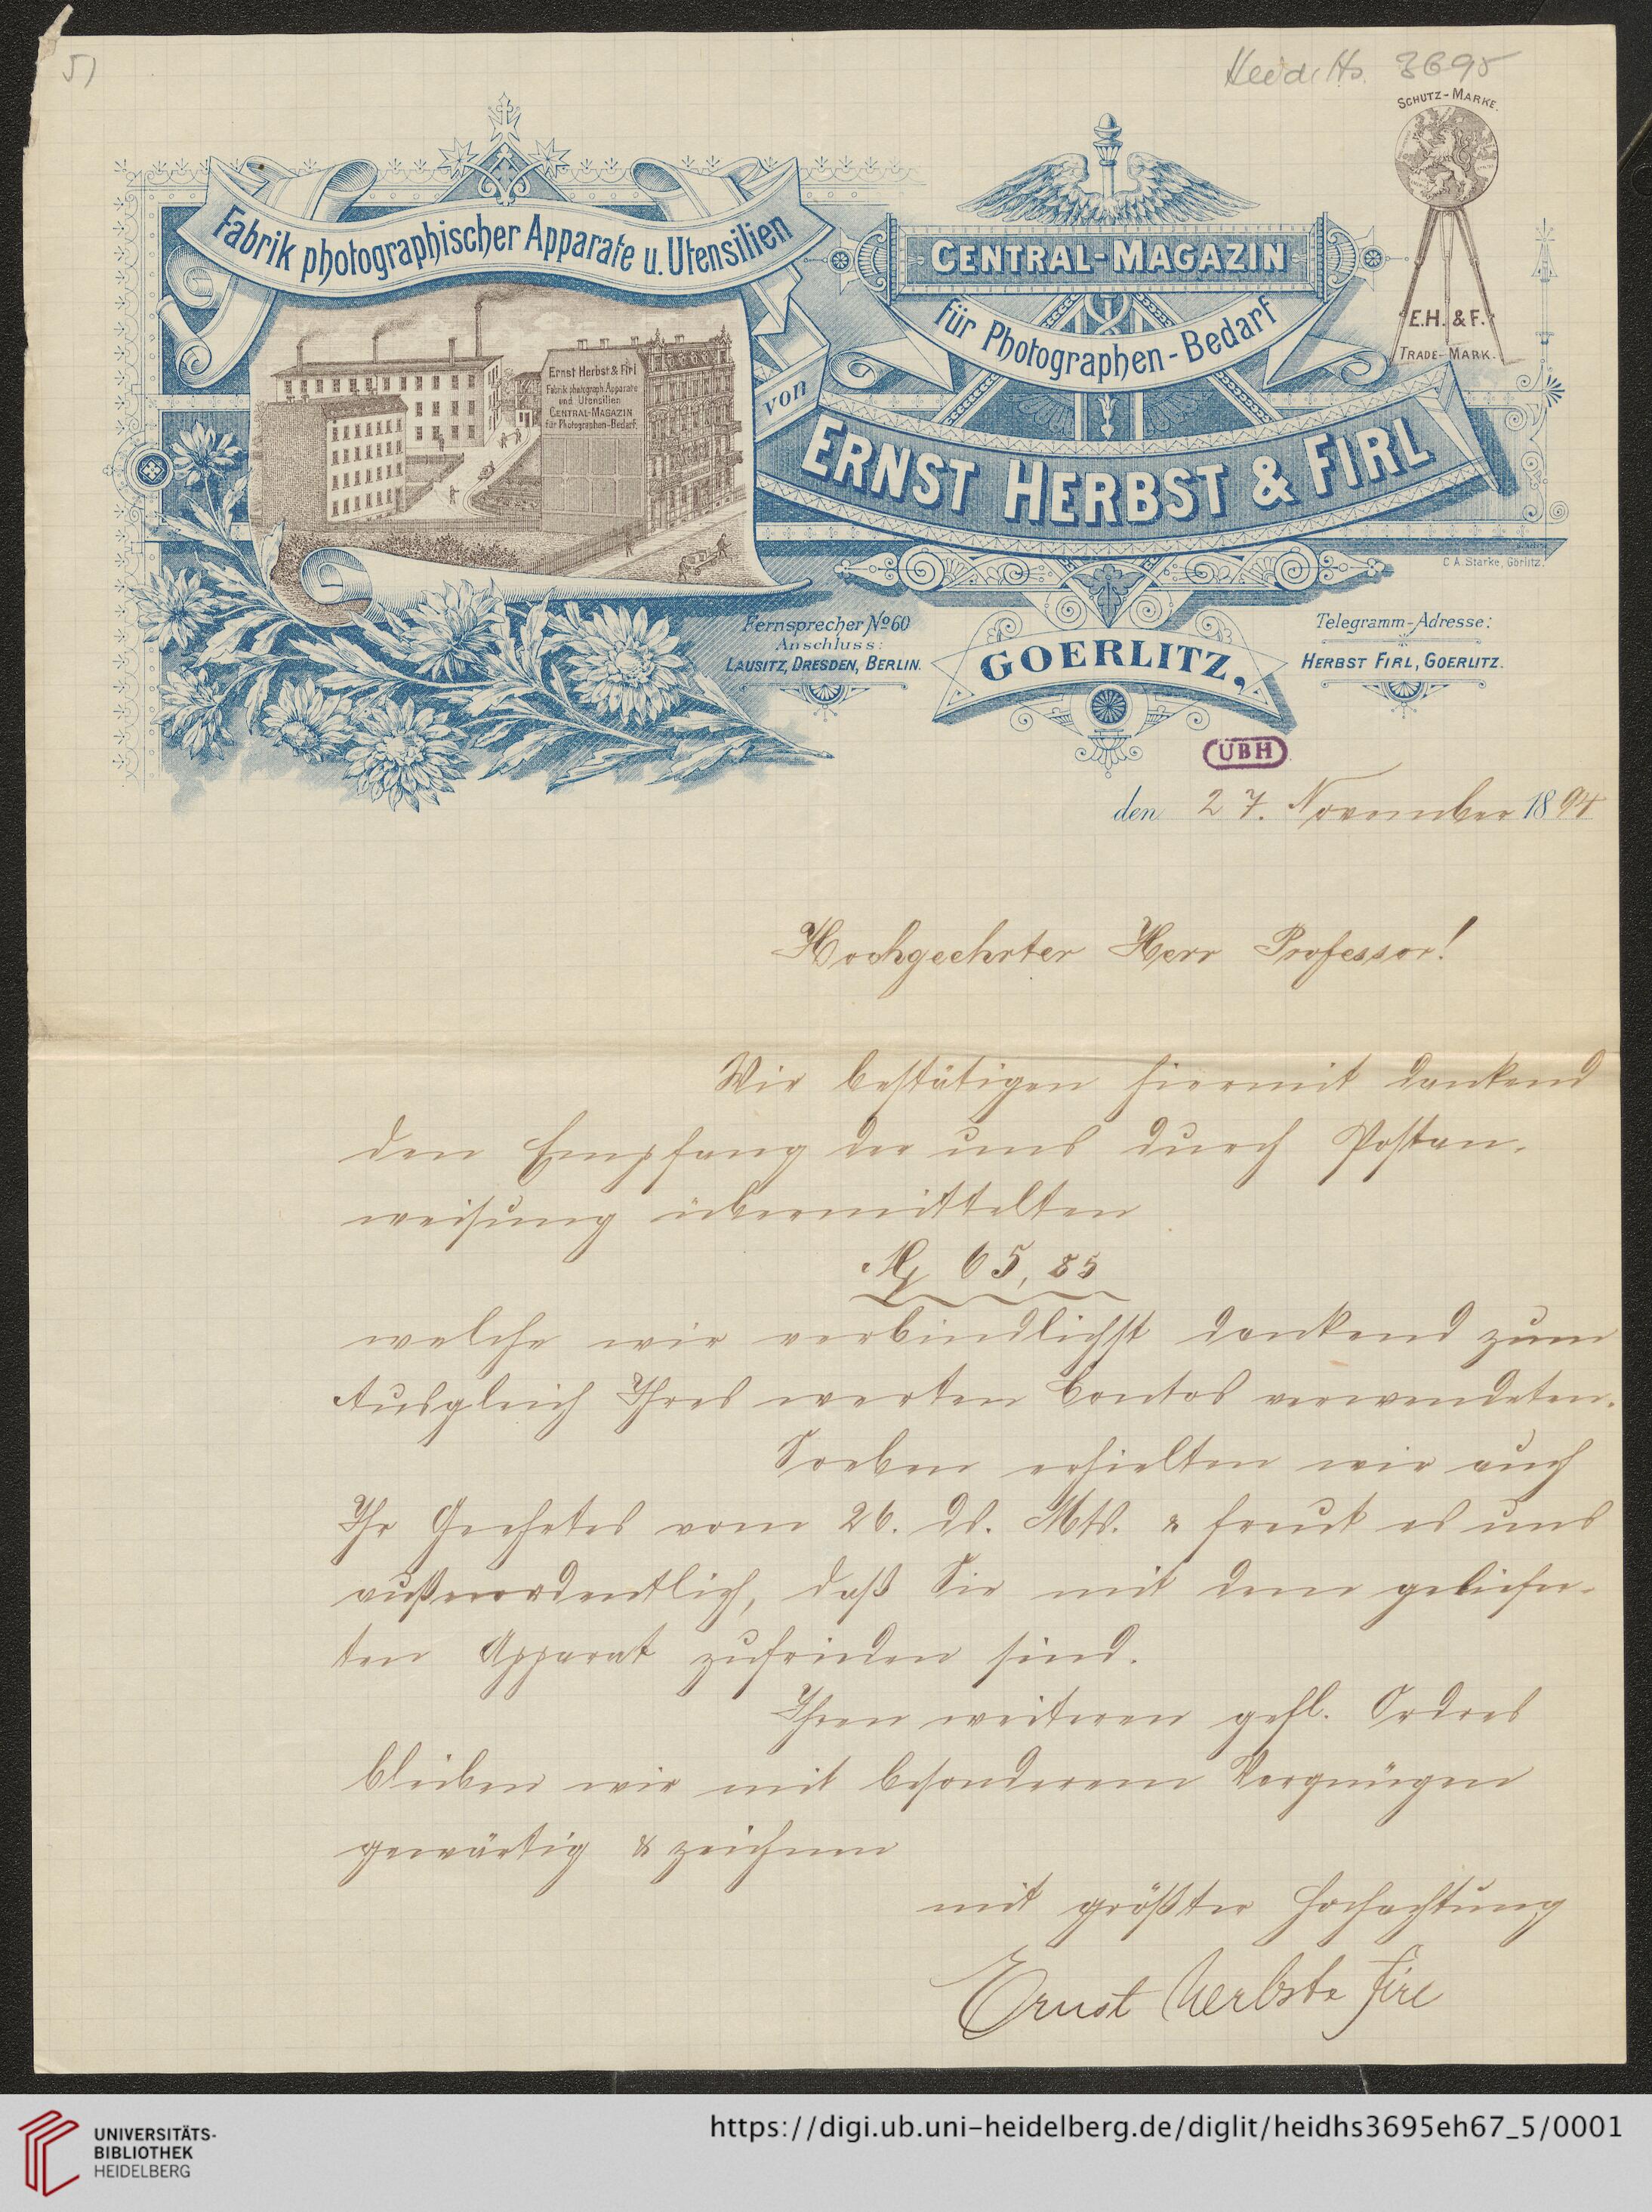 5)
Heid. Hs. 3695
SCHUTZ-MARKE.
E.H. & F.
TRADE-MARK.
Fabrik photographischer Apparate u. Utensilien
CENTRAL-MAGAZIN
für Photographen-Bedarf
von
ERNST HERBST & FIRL
Ernst Herbst & Firl
Fabrik photograph. Apparate
und Utensilien
CENTRAL-MAGAZIN
für Photographen-Bedarf.
C. A. Starke, Görlitz.
Fernsprecher No 60
Anschluss:
LAUSITZ, DRESDEN, BERLIN.
GOERLITZ,
Telegramm-Adresse:
HERBST FIRL, GOERLITZ.
UBH
den 27. November 1894
Hochgeehrter Herr Professor!
Wir bestätigen hiermit dankend
den Empfang der uns durch Postan-
weisung übermittelten
M 65,85
welche wir verbindlichst dankend zum
Ausgleich Ihres werten Contos verwendeten.
Soeben erhielten wir auch
Ihr Geehrtes vom 26. ds. Mts. & freut es uns
außerordentlich, daß Sie mit dem geliefer-
ten Apparat zufrieden sind.
Ihren weiteren gefl. Ordres
bleiben wir mit besonderem Vergnügen
gewärtig & zeichnen
mit größter Hochachtung
Ernst Herbst & Firl
UNIVERSITÄTS-
BIBLIOTHEK
HEIDELBERG
https://digi.ub.uni-heidelberg.de/diglit/heidhs3695eh67_5/0001